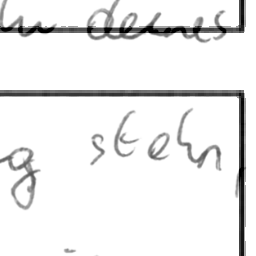 deines
g stehn,